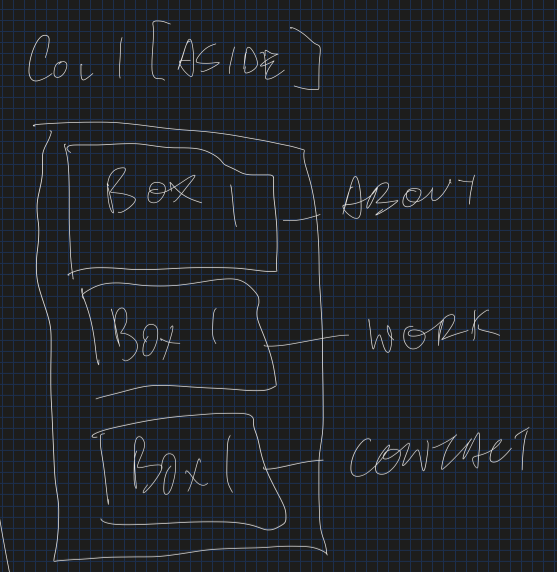 Col 1 [ASIDE]
BOX 1 ABOUT
BOX 1 WORK
BOX 1 CONTACT